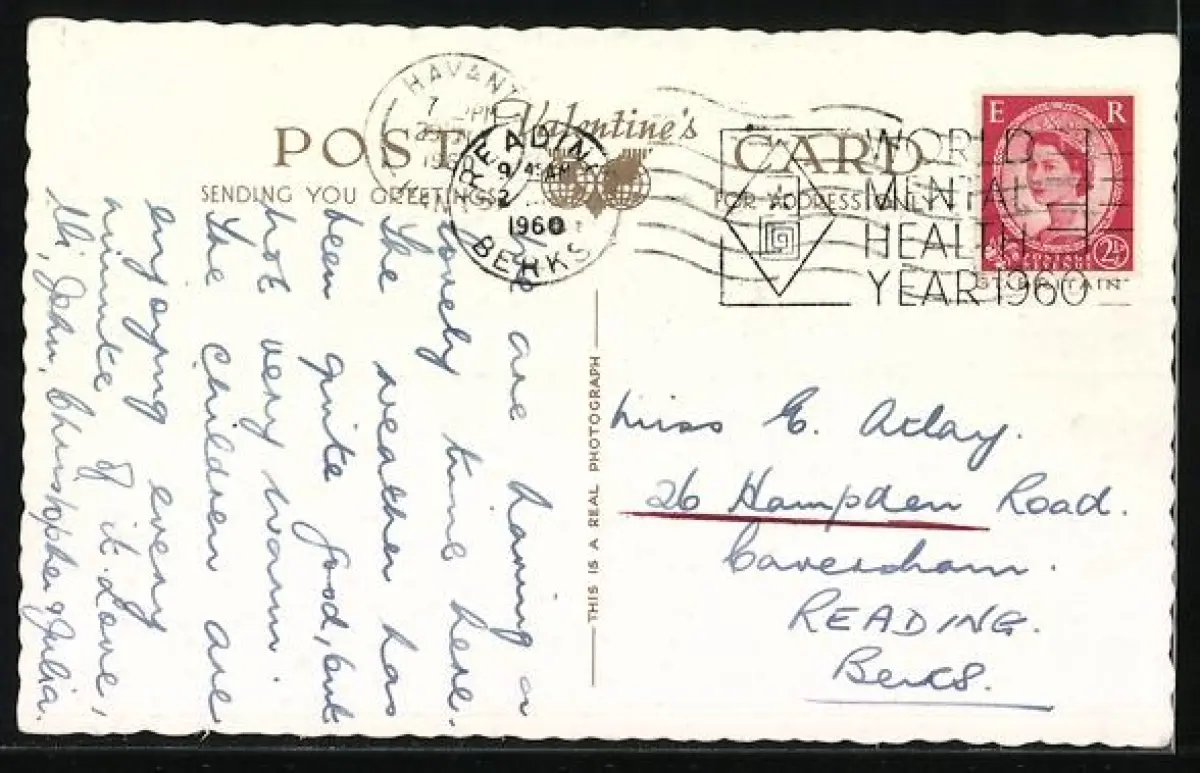 HAVANT
7
PM
196
READING
9 45 AM
2
1960
BERKS
Valentine's
POST CARD
SENDING YOU GREETINGS
FOR ADDRESS ONLY
WORLD
MENTAL
HEALTH
YEAR 1960
E R
POSTAGE
REVENUE
2½
BRITAIN
We are having a
lovely time here.
The weather has
been quite good, but
not very warm.
The children are
enjoying every
minute of it. Love,
John, Christopher & Julia.
THIS IS A REAL PHOTOGRAPH
Miss E. Atlay.
26 Hampden Road.
Caversham.
READING.
Berks.